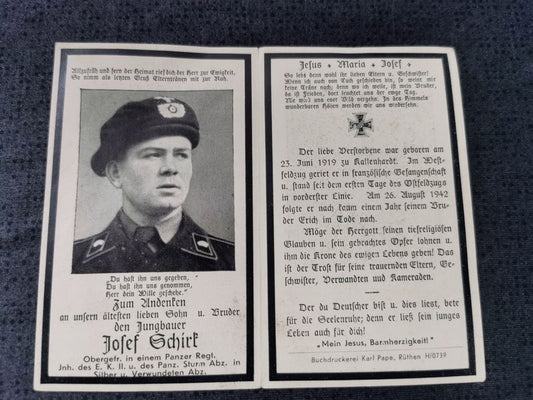 Allzufrüh und fern der Heimat rief dich der Herr zur Ewigkeit,
So nimm als letzten Gruß Elterntränen mit zur Ruh.
„Du hast ihn uns gegeben,
Du hast ihn uns genommen,
Herr dein Wille geschehe.”
Zum Andenken
an unsern ältesten lieben Sohn u. Bruder
den Jungbauer
Josef Schirk
Obergefr. in einem Panzer Regt.
Jnh. des E. K. II u. des Panz. Sturm Abz. in
Silber u. Verwundeten Abz.
Jesus + Maria + Josef +
So lebt denn wohl ihr lieben Eltern u. Geschwister!
Wenn ich auch von Euch geschieden bin, so weint mir
keine Träne nach; denn wo ich weile, ist mein Bruder,
da ist Frieden, dort leuchtet uns der ewge Tag.
Nie wird uns euer Bild vergehn. In des Himmels
wunderbaren Höhen werden wir uns wiedersehn.
Der liebe Verstorbene war geboren am
23. Juni 1919 zu Kallenhardt. Im West-
feldzug geriet er in französische Gefangenschaft
u. stand seit dem ersten Tage des Ostfeldzugs
in vorderster Linie. Am 26. August 1942
folgte er nach kaum einem Jahr seinem Bru-
der Erich im Tode nach.
Möge der Herrgott ihm seinen tiefreligiösen
Glauben u. sein gebrachtes Opfer lohnen u.
ihm die Krone des ewigen Lebens geben! Das
ist der Trost für seine trauernden Eltern, Ge-
schwister, Verwandten und Kameraden.
Der du Deutscher bist u. dies liest, bete
für die Seelenruhe; denn er ließ sein junges
Leben auch für dich!
„Mein Jesus, Barmherzigkeit!”
Buchdruckerei Karl Pape, Rüthen H/0739